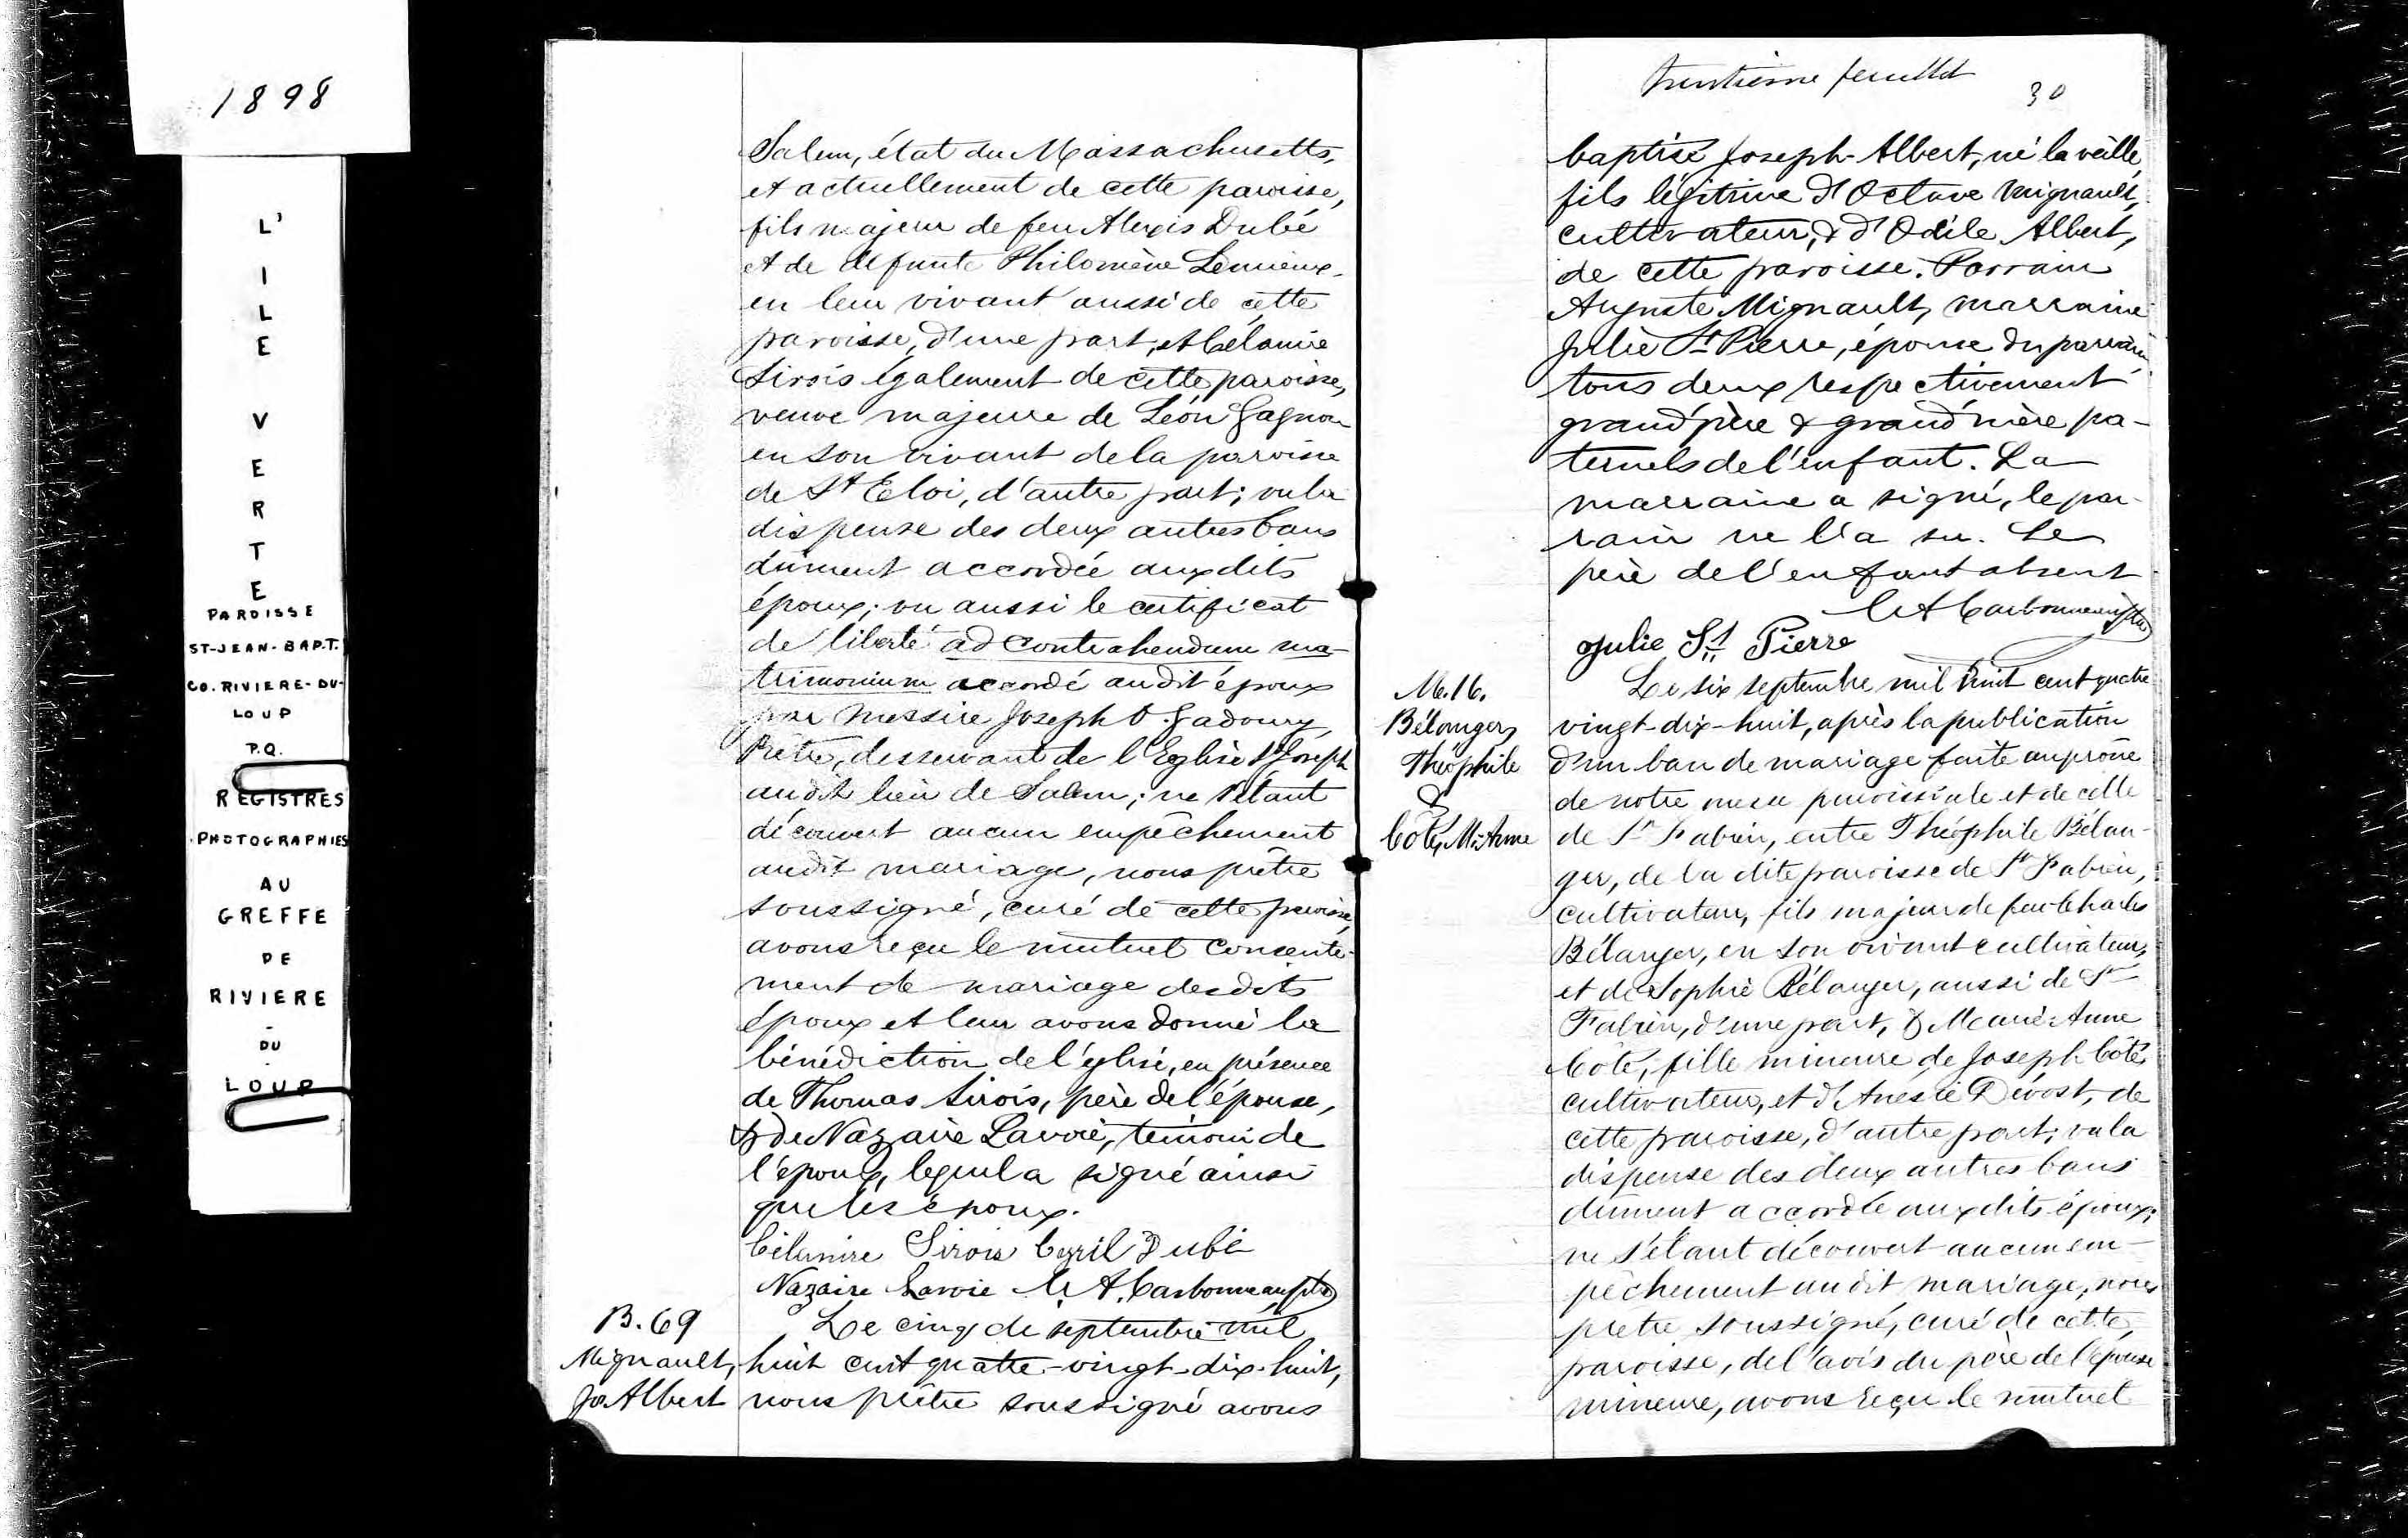 1898
L'
I
L
E
V
E
R
T
E
PAROISSE
ST-JEAN-BAPT.
CO. RIVIERE-DU-
LOUP
P.Q.
REGISTRES
PHOTOGRAPHIES
AU
GREFFE
DE
RIVIERE
-
DU
-
LOUP
Salem, état du Massachusetts,
et actuellement de cette paroisse,
fils majeur de feu Alexis Dubé
et de défunte Philomène Lemieux
en leur vivant aussi de cette
paroisse, d'une part, et Célanire
Sirois également de cette paroisse,
veuve majeure de Léon Gagnon
en son vivant de la paroisse
de St Eloi, d'autre part; vu la
dispense des deux autres bans
dûment accordée aux dits
époux; vu aussi le certificat
de liberté ad contrahendum ma-
trimonium accordé au dit époux
par Messire Joseph O. Gadoury,
Prêtre, desservant de l'Eglise St Joseph
au dit lieu de Salem; ne s'étant
découvert aucun empêchement
au dit mariage, nous prêtre
soussigné, curé de cette paroisse,
avons reçu le mutuel consente-
ment de mariage des dits
époux et leur avons donné la
bénédiction de l'église, en présence
de Thomas Sirois, père de l'épouse,
& de Nazaire Lavoie, témoin de
l'époux, lequel a signé ainsi
que les époux.
Célanire Sirois Cyril Dubé
Nazaire Lavoie A. Carbonneau ptre
B. 69
Mignault,
Jos. Albert
Le cinq de septembre mil
huit cent quatre-vingt-dix-huit,
nous prêtre soussigné avons
trentième feuillet
30
baptisé Joseph-Albert, né la veille,
fils légitime d'Octave Mignault,
cultivateur, & d'Odile Albert,
de cette paroisse. Parrain
Auguste Mignault, marraine
Julie St Pierre, épouse du parrain,
tous deux respectivement
grand'père & grand'mère pa-
ternels de l'enfant. La
marraine a signé, le par-
rain ne l'a su. Le
père de l'enfant absent
A Carbonneau ptre
Julie St Pierre
M. 16.
Bélanger,
Théophile
&
Côté, M. Anne
Le six septembre mil huit cent quatre
vingt-dix-huit, après la publication
d'un ban de mariage faite au prône
de notre messe paroissiale et de celle
de St Fabien, entre Théophile Bélan-
ger, de la dite paroisse de St Fabien,
cultivateur, fils majeur de feu Charles
Bélanger, en son vivant cultivateur,
et de Sophie Bélanger, aussi de St
Fabien, d'une part, & Marie-Anne
Côté, fille mineure de Joseph Côté,
cultivateur, et d'Anésie Dévost, de
cette paroisse, d'autre part; vu la
dispense des deux autres bans
dûment accordée aux dits époux;
ne s'étant découvert aucun em-
pêchement au dit mariage, nous
prêtre soussigné, curé de cette
paroisse, de l'avis du père de l'épouse
mineure, avons reçu le mutuel